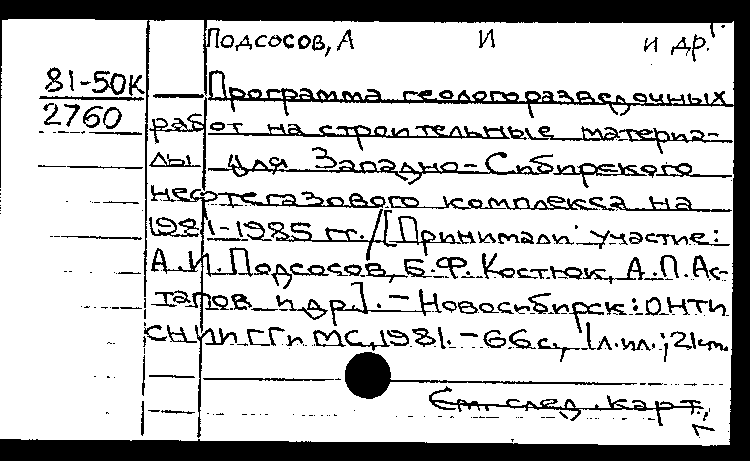 Подсосов, А И и др.
81-50К Программа геологоразведочных
2760 работ на строительные материа-
лы для Западно-Сибирского
нефтегазового комплекса на
1981-1985 гг. / [Принимали участие:
А.И. Подсосов, Б.Ф. Костюк, А.П. Ас-
тапов и др.]. - Новосибирск: ОНТИ
СНИИГГиМС, 1981. - 66 с., 1 л. ил.; 21 см.
См. след. карт.